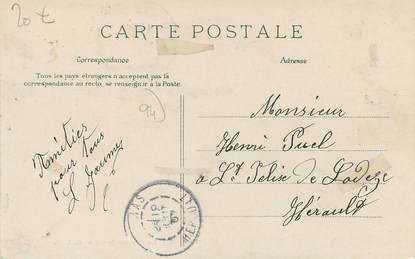 20€
CARTE POSTALE
Correspondance
Adresse
Tous les pays étrangers n'acceptent pas la
correspondance au recto, se renseigner à la Poste.
94
Amitiés
pour tous
Monsieur
Henri Puel
a St Felise de Lodeze
Hérault